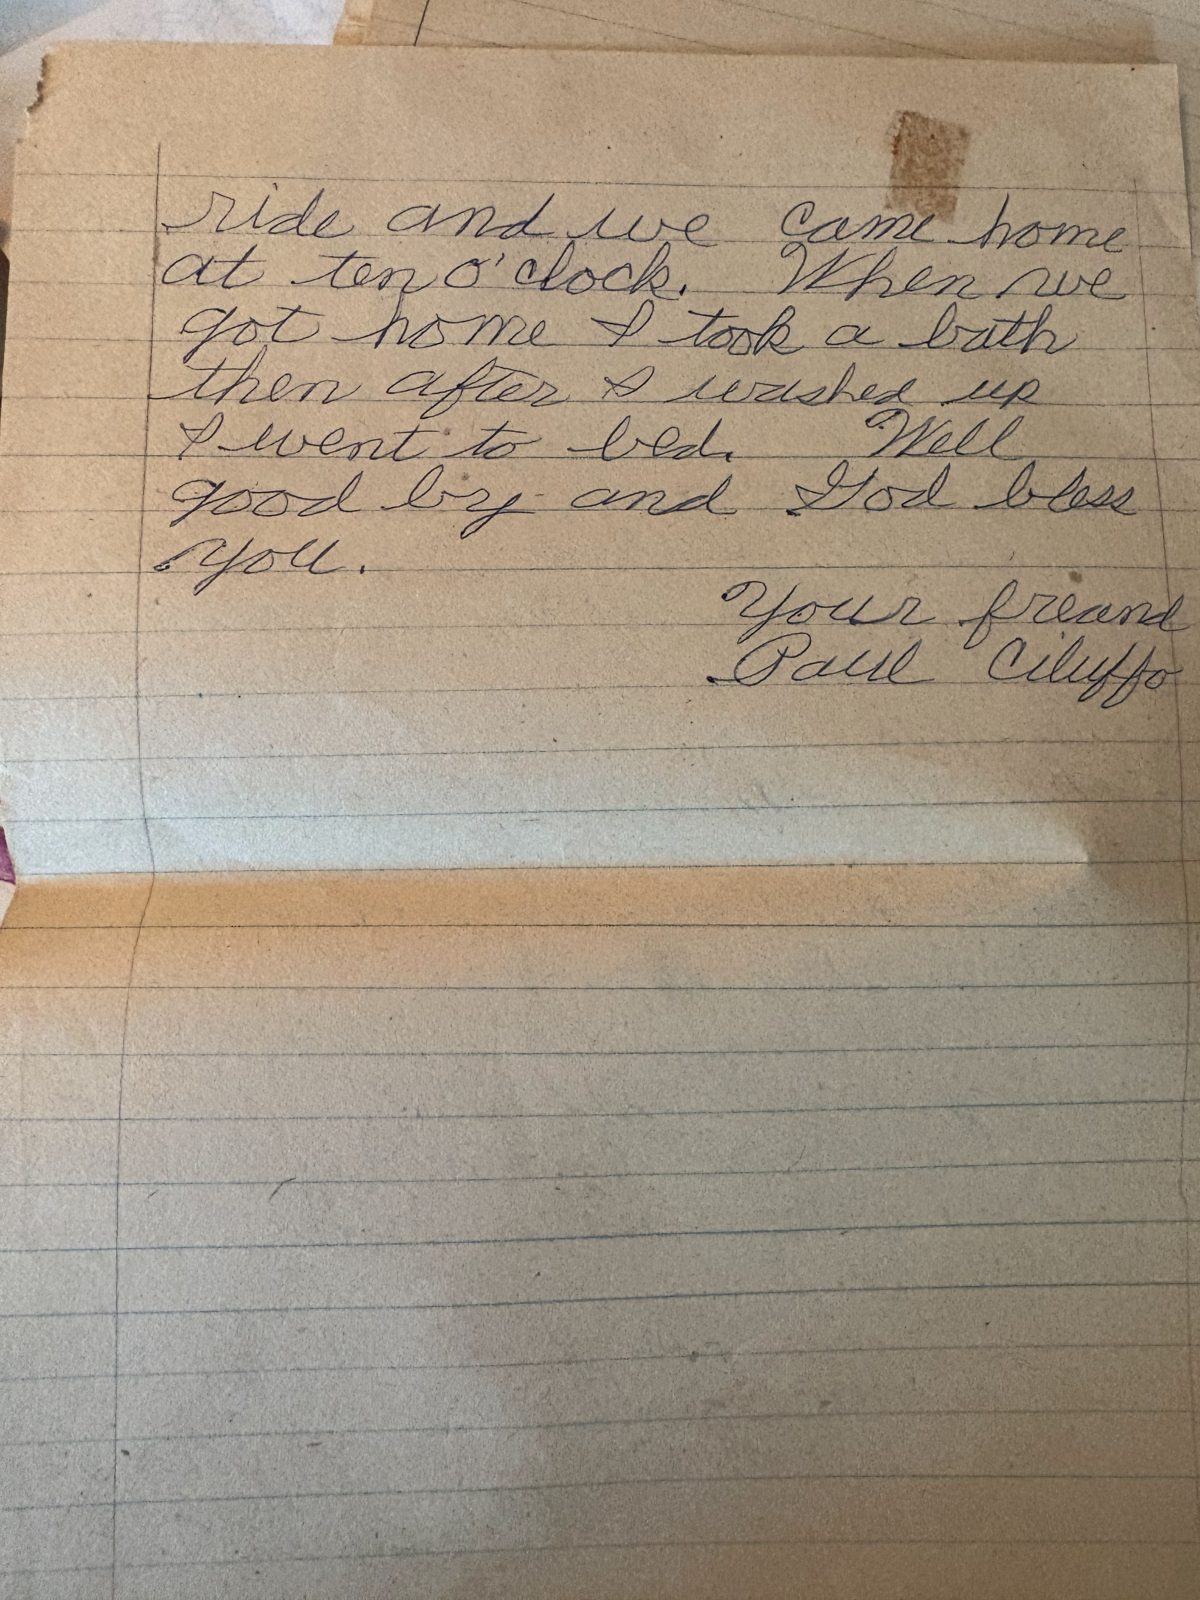 ride and we came home
at ten o'clock. When we
got home I took a bath
then after I washed up
I went to bed. Well
good by and God bless
you.
Your freand
Paul Ciluffo